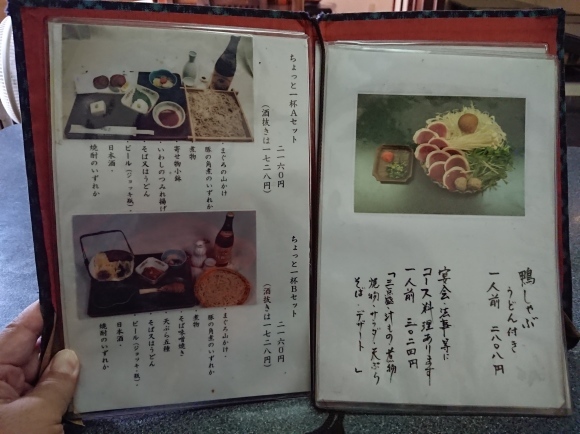 ちょっと一杯Aセット　二一六〇円
（酒抜きは一七二八円）
・まぐろの山かけ
・豚の角煮のいずれか
・煮物
・寄せ物小鉢
・いわしのつみれ揚げ
・そば又はうどん
・ビール（ジョッキ、瓶）、
日本酒、
焼酎のいずれか
ちょっと一杯Bセット　二一六〇円
（酒抜きは一七二八円）
・まぐろ山かけ、
豚の角煮のいずれか
・煮物
・そば味噌焼き
・天ぷら五種
・そば又はうどん
・ビール（ジョッキ、瓶）、
日本酒、
焼酎のいずれか
鴨しゃぶ
うどん付き
一人前　二八〇八円
宴会・法事等に
コース料理あります
一人前　三〇二四円
「三点盛・汁もの・煮物
焼物・サラダ・天ぷら
そば・デザート」